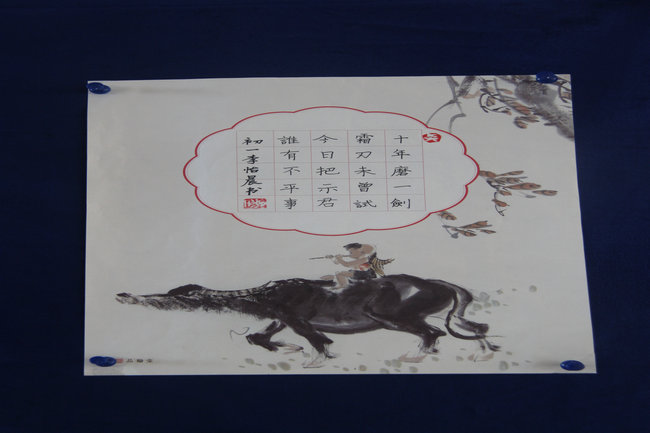 十年磨一劍
霜刃未曾試
今日把示君
誰有不平事
初一李怡晨书